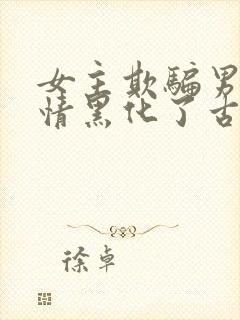 女主欺骗男
情黑化了古
徐卓